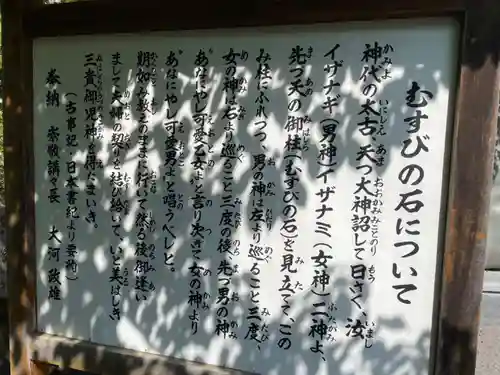 むすびの石について
神代の太古、天つ大神詔して曰さく、汝
イザナギ（男神）イザナミ（女神）二神よ、
先つ天の御柱（むすびの石）を見立て、この
み柱にふれつつ、男の神は左より巡ること三度、
女の神は右より巡ること三度の後、先つ男の神
あなにやし可愛乙女よと言り、次ぎて女の神より
あなにやし可愛男よと唱うべしと。
期如 み教えのままに行いて、然る後御逢い
まして夫婦の契りを結び給いて、いと美はしき
三貴御児神を得たまいき。
（古事記・日本書紀より要約）
奉納 崇敬講々長 大河政雄